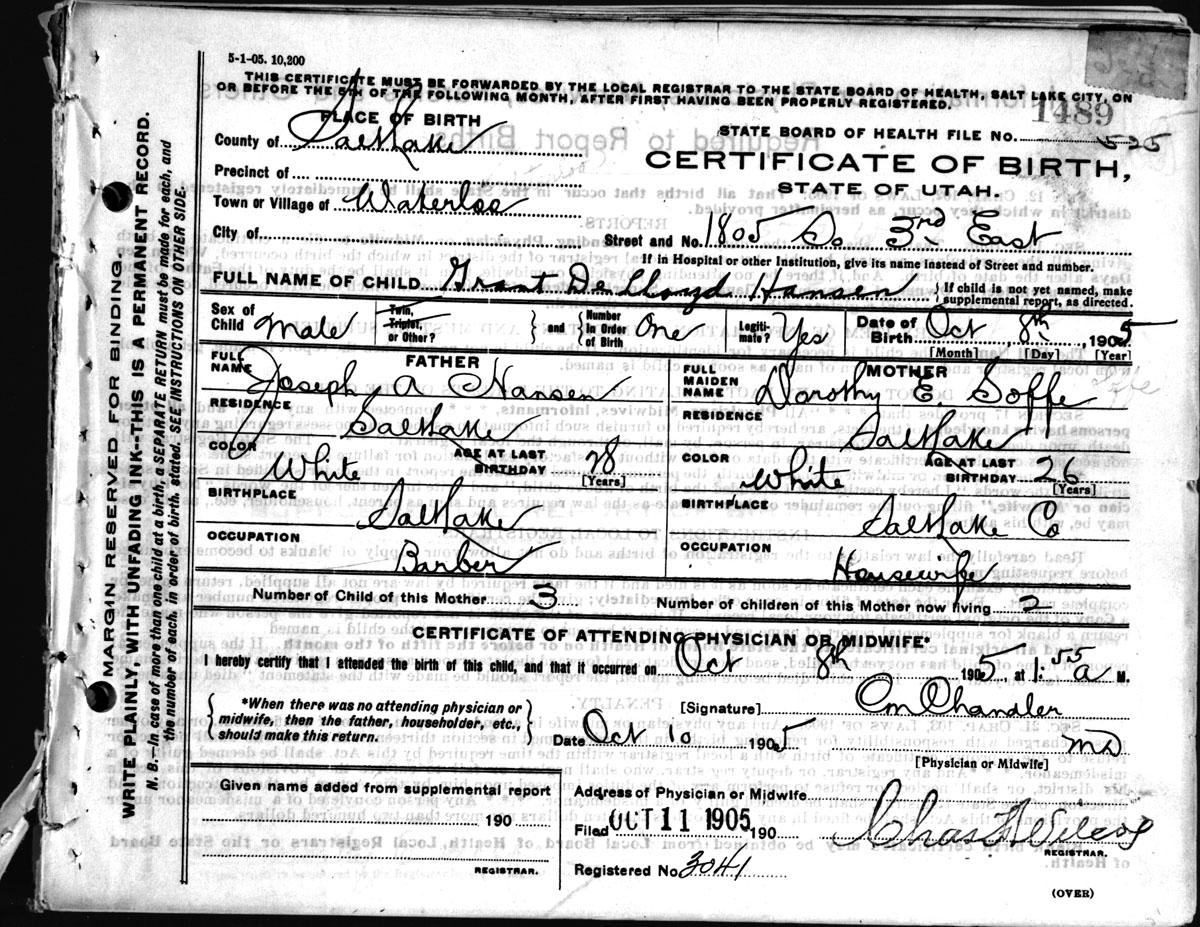 5-1-05. 10,200
THIS CERTIFICATE MUST BE FORWARDED BY THE LOCAL REGISTRAR TO THE STATE BOARD OF HEALTH, SALT LAKE CITY, ON
OR BEFORE THE 5TH OF THE FOLLOWING MONTH, AFTER FIRST HAVING BEEN PROPERLY REGISTERED.
1489
PLACE OF BIRTH
STATE BOARD OF HEALTH FILE NO. 525
County of Salt Lake
CERTIFICATE OF BIRTH,
Precinct of
STATE OF UTAH.
Town or Village of Waterloo
City of
Street and No. 1805 So 3rd East
If in Hospital or other Institution, give its name instead of Street and number.
FULL NAME OF CHILD Grant De Lloyd Hansen { If child is not yet named, make supplemental report, as directed.
Sex of Child Male Twin, Triplet, or Other? } and { Number in Order of Birth One Legiti-mate? Yes Date of Birth Oct 8th, 1905
[Month] [Day] [Year]
FATHER
FULL NAME Joseph A Hansen
RESIDENCE Salt Lake
COLOR White AGE AT LAST BIRTHDAY 28
[Years]
BIRTHPLACE Salt Lake
OCCUPATION Barber
MOTHER
FULL MAIDEN NAME Dorothy E Soffe
RESIDENCE Salt Lake
COLOR White AGE AT LAST BIRTHDAY 26
[Years]
BIRTHPLACE Salt Lake Co
OCCUPATION Housewife
Number of Child of this Mother 3 Number of children of this Mother now living 2
CERTIFICATE OF ATTENDING PHYSICIAN OR MIDWIFE*
I hereby certify that I attended the birth of this child, and that it occurred on Oct 8th 1905, at 1.55 a M.
{ *When there was no attending physician or midwife, then the father, householder, etc., should make this return. }
[Signature] CM Chandler
Date Oct 10 1905 MD
[Physician or Midwife]
Given name added from supplemental report
190
REGISTRAR.
Address of Physician or Midwife
Filed OCT 11 1905 190
REGISTRAR.
Registered No. 3041
(OVER)
MARGIN RESERVED FOR BINDING.
WRITE PLAINLY, WITH UNFADING INK--THIS IS A PERMANENT RECORD.
N. B.—In case of more than one child at a birth, a SEPARATE RETURN must be made for each, and
the number of each, in order of birth, stated. SEE INSTRUCTIONS ON OTHER SIDE.